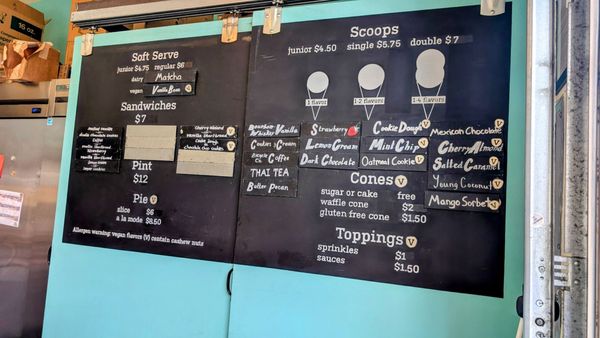 Soft Serve
junior $4.75 regular $6
dairy Matcha
vegan Vanilla Bean V
Sandwiches
$7
Pint
$12
Pie V
slice $6
a la mode $8.50
Allergen warning: vegan flavors (V) contain cashew nuts
Scoops
junior $4.50 single $5.75 double $7
1 flavor
1-2 flavors
1-4 flavors
Bourbon
Vanilla
Cookies Cream
Coffee
THAI TEA
Butter Pecan
Strawberry
Lemon Cream
Dark Chocolate
Cookie Dough V
Mint Chip V
Oatmeal Cookie V
Mexican Chocolate V
Cherry Almond V
Salted Caramel V
Young Coconut V
Mango Sorbet V
Cones V
sugar or cake free
waffle cone $2
gluten free cone $1.50
Toppings V
sprinkles $1
sauces $1.50
16 oz.